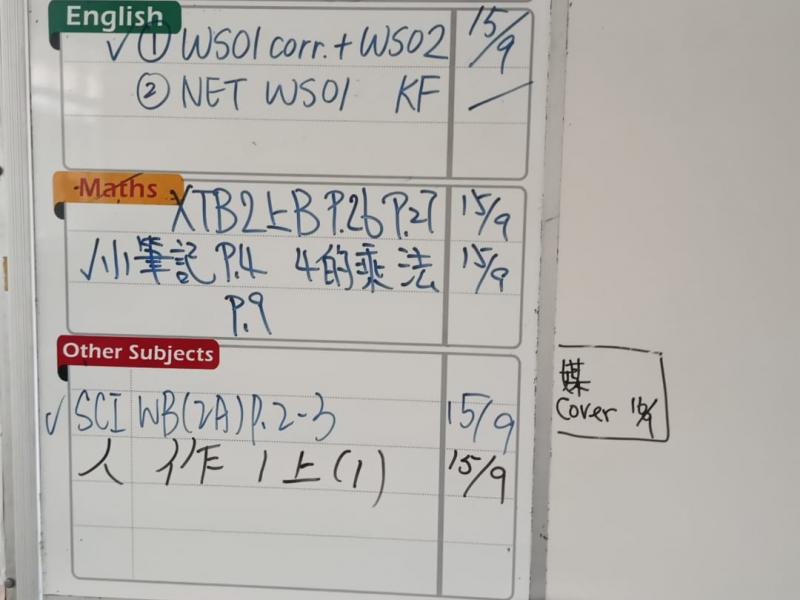 English
✓ ① WS01 corr. + WS02 15/9
② NET WS01 KF
Maths
XTB2上B P.26 P.27 15/9
✓小筆記 P.4 4的乘法 15/9
P.9
Other Subjects
✓ SCI WB(2A) P.2-3 15/9
人 作 1上(1) 15/9
媒
Cover 16/9